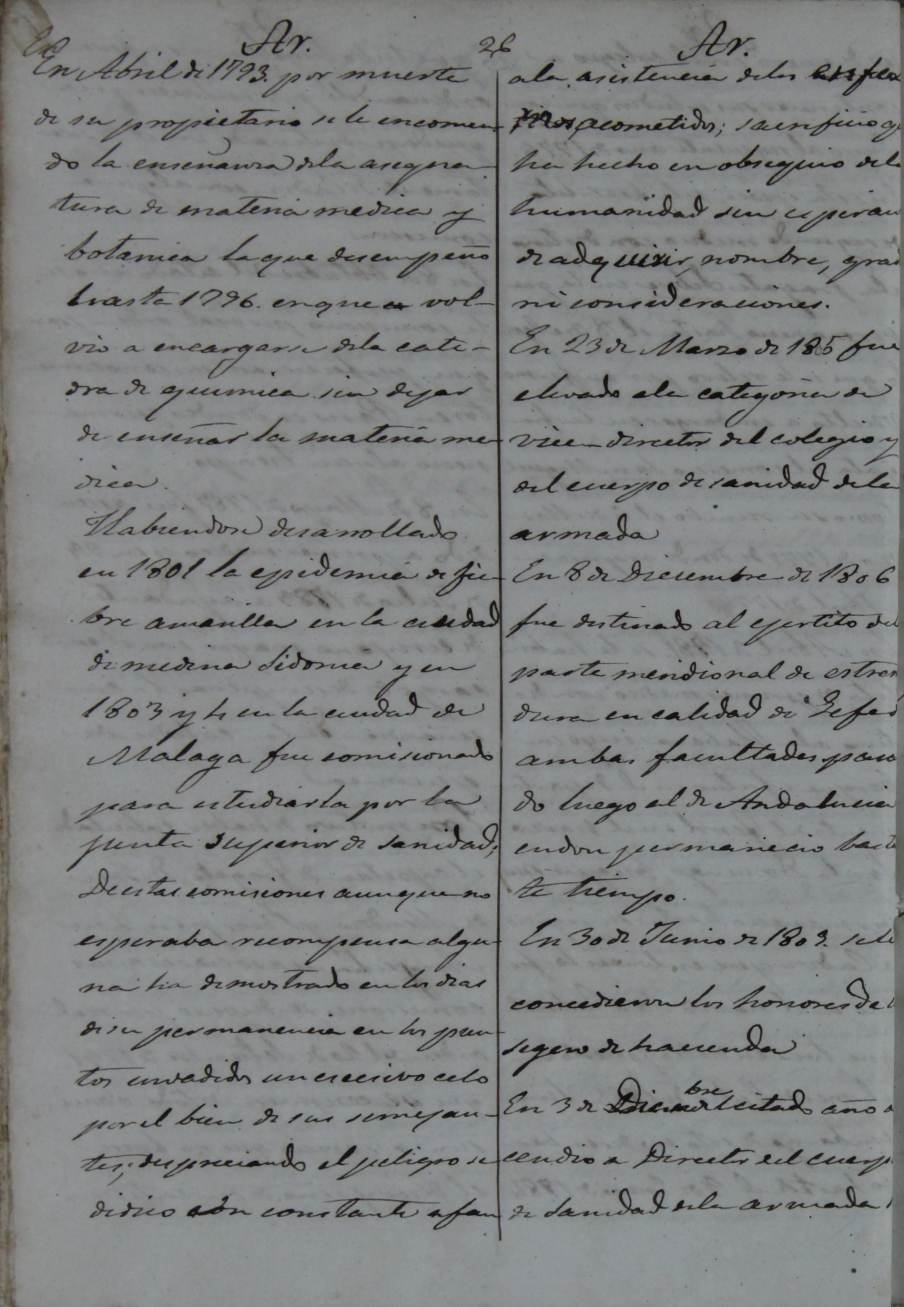 Ar. 26 Ar.
En Abril de 1793. por muerte
de su propietario se le encomen-
do la enseñanza dela asegna-
tura de materia medica y
botanica la que desempeño
hasta 1796. en que vol-
vio a encargarse dela cate-
dra de quimica sin dejar
de enseñar la materia me-
dica.
Habiendose desarrollado
en 1801 la epidemia de fie-
bre amarilla en la ciudad
de medina Sidonia y en
1803 y 4 en la ciudad de
Malaga fue comisionado
para estudiarla por la
junta superior de sanidad;
De estas comisiones aunque no
esperaba recompensa algu-
na ha demostrado en los dias
de su permanencia en los pun-
tos invadidos un escesivo celo
por el bien de sus semejan-
tes; despreciando el peligro se
dedico con constante afan
ala asistencia delos
acometidos; sacrificio q
ha hecho en obsequio dela
humanidad sin esperan
de adquirir, nombre, gra
ni consideraciones.
En 23 de Marzo de 1805 fue
elevado ala categoria de
vice-director del colegio y
del cuerpo de sanidad dela
armada
En 8 de Diciembre de 1806
fue destinado al ejertito de
parte meridional de estrem
dura en calidad de Gefe d
ambas facultades pasan
do luego al de Andalucia
endon permanecio bast
te tiempo.
En 30 de Junio de 1809. se le
concedieron los honores de
segero de hacienda
En 3 de Diciembre del citado año a
cendio a Director del cuerp
de sanidad dela armada